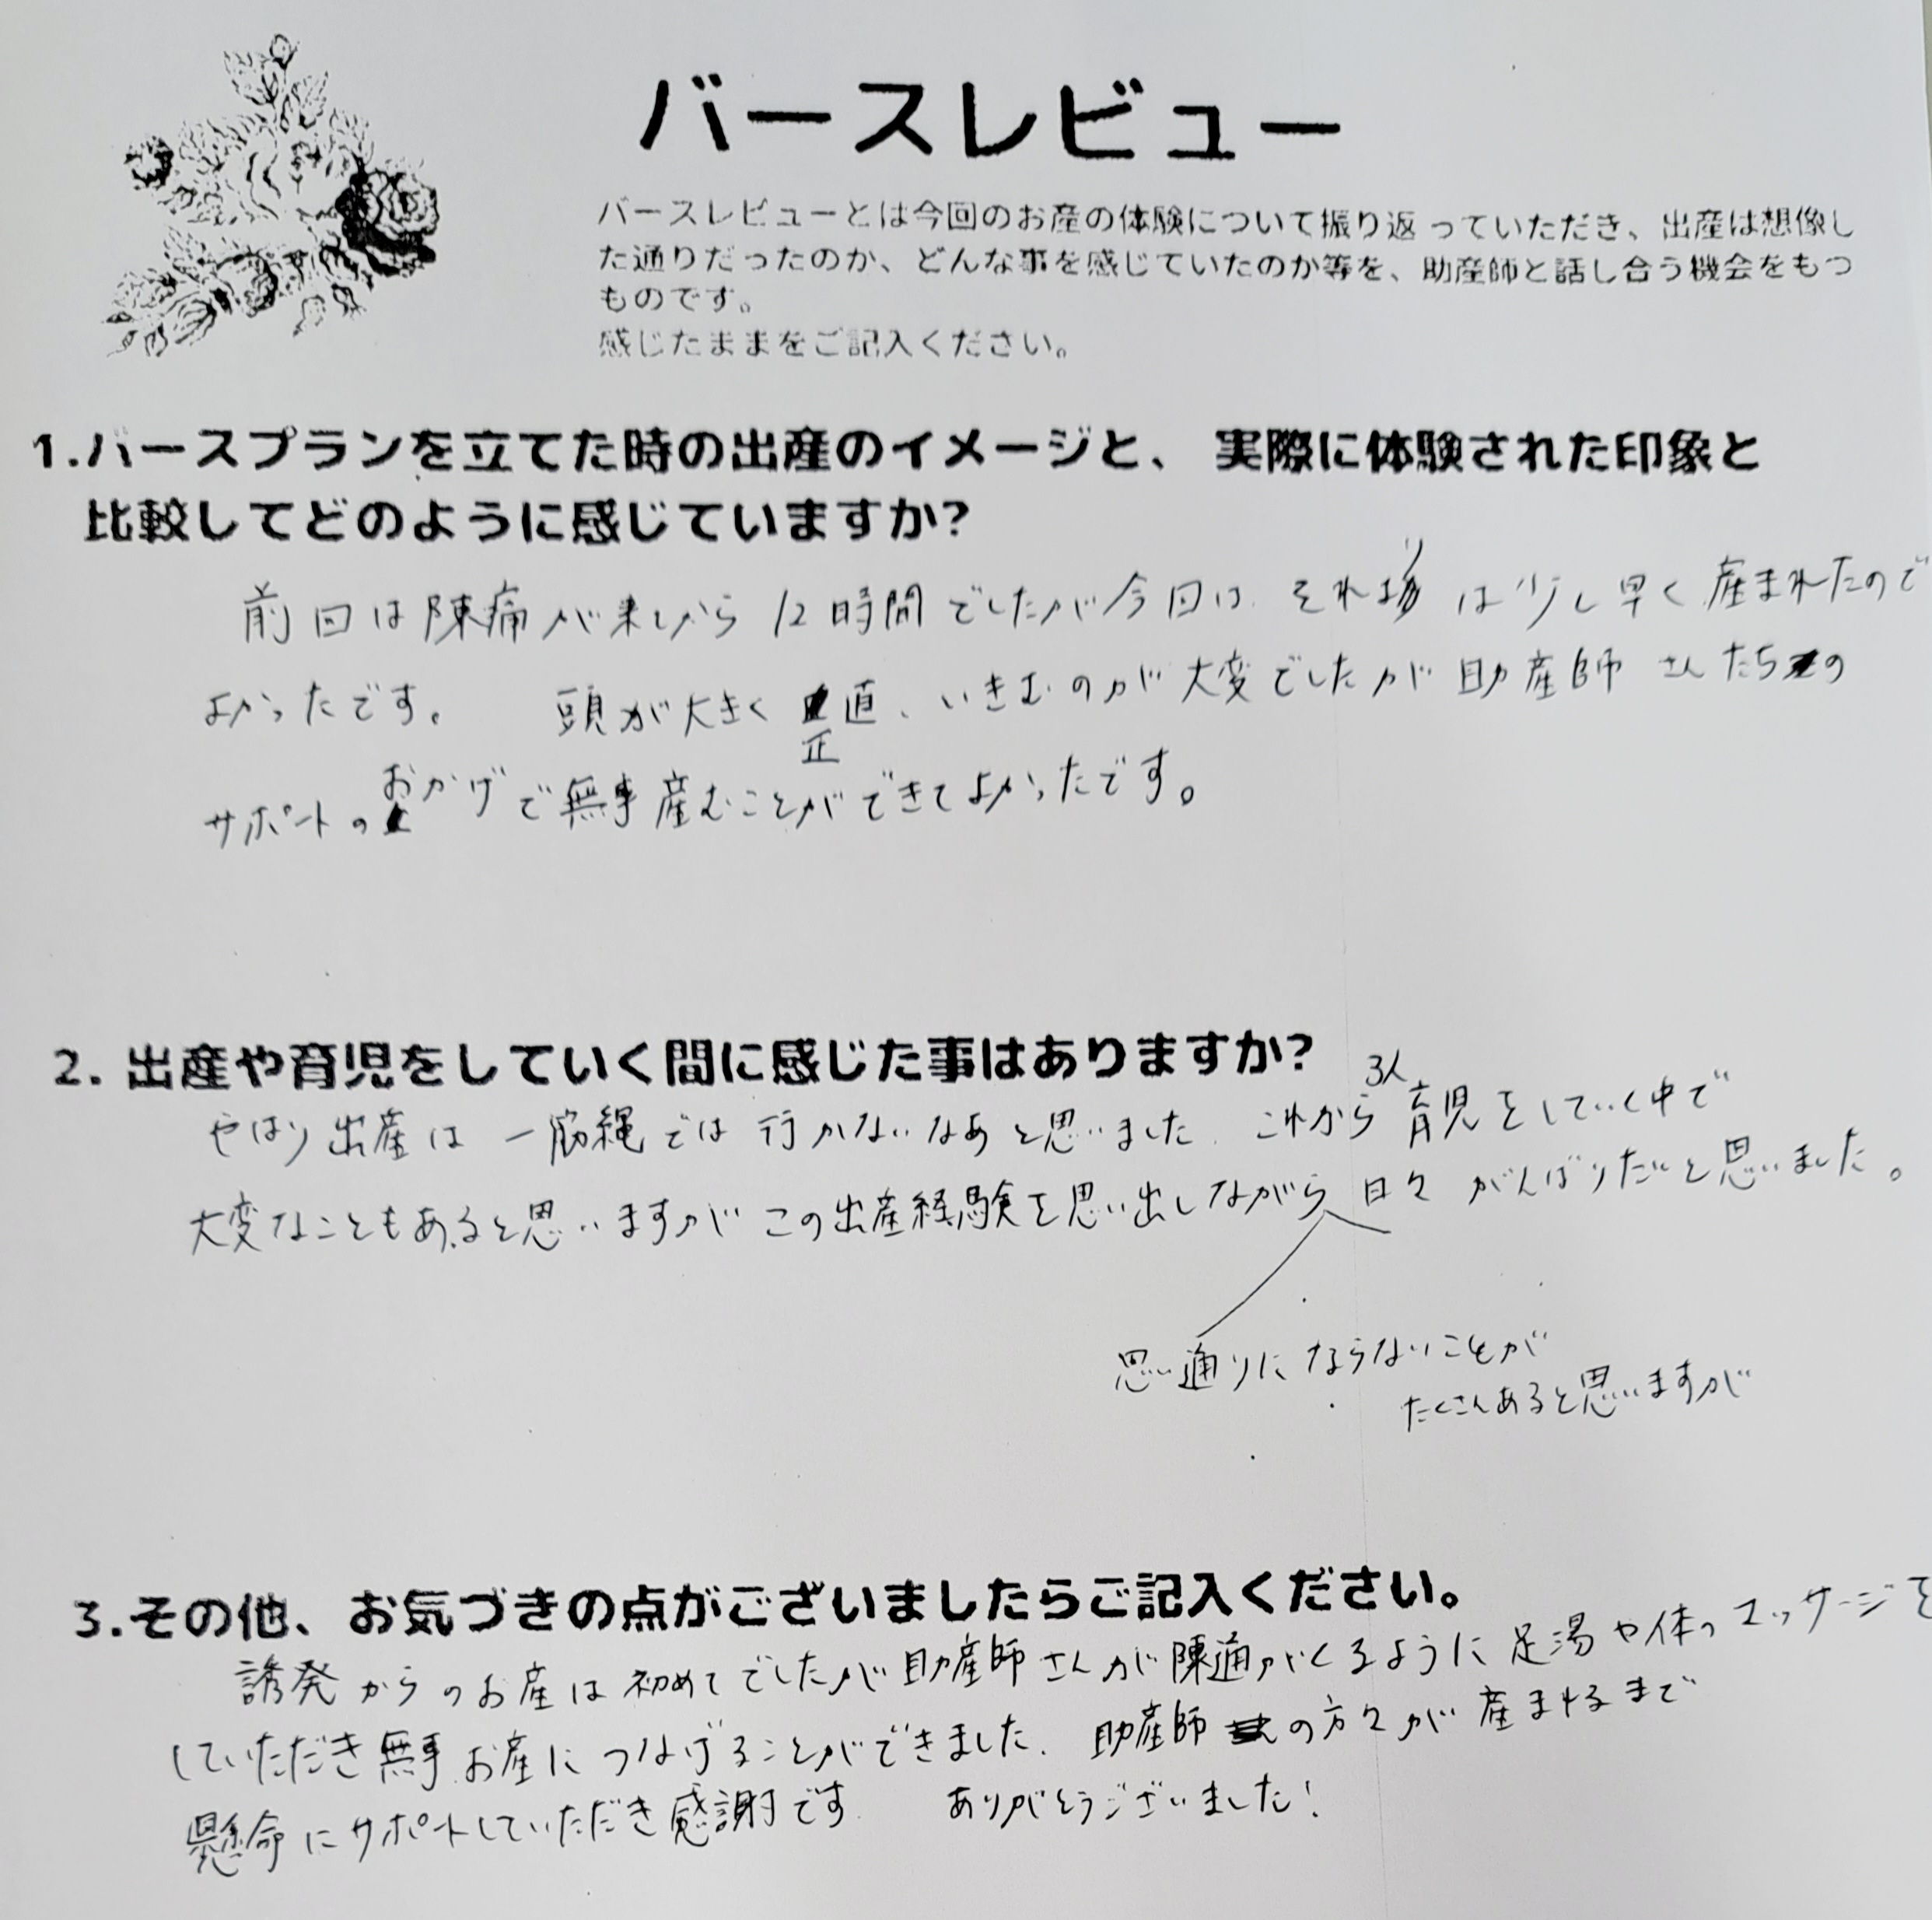 バースレビュー
バースレビューとは今回のお産の体験について振り返っていただき、出産は想像し
た通りだったのか、どんな事を感じていたのか等を、助産師と話し合う機会をもつ
ものです。
感じたままをご記入ください。
1.バースプランを立てた時の出産のイメージと、実際に体験された印象と
比較してどのように感じていますか?
前回は陣痛が来てから12時間でしたが今回は、それより は少し早く産まれたので
よかったです。 頭が大きく 正直、いきむのが大変でしたが助産師さんたちの
サポートのおかげで無事産むことができてよかったです。
2. 出産や育児をしていく間に感じた事はありますか?
やはり出産は一筋縄では行かないなあと思いました。これから3人育児をしていく中で
大変なこともあると思いますがこの出産経験を思い出しながら日々がんばりたいと思いました。
思い通りにならないことが
たくさんあると思いますが
3.その他、お気づきの点がございましたらご記入ください。
誘発からのお産は初めてでしたが助産師さんが陣通がくるように足湯や体のマッサージを
していただき無事お産につなげることができました。助産師の方々が産まれるまで
懸命にサポートしていただき感謝です。 ありがとうございました!